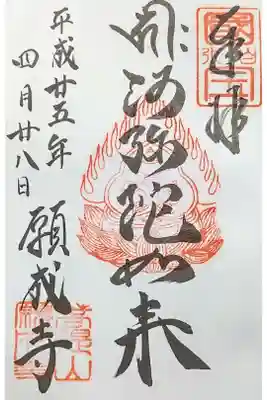 奉拝
阿弥陀如来
平成廿五年
四月廿八日
願成寺